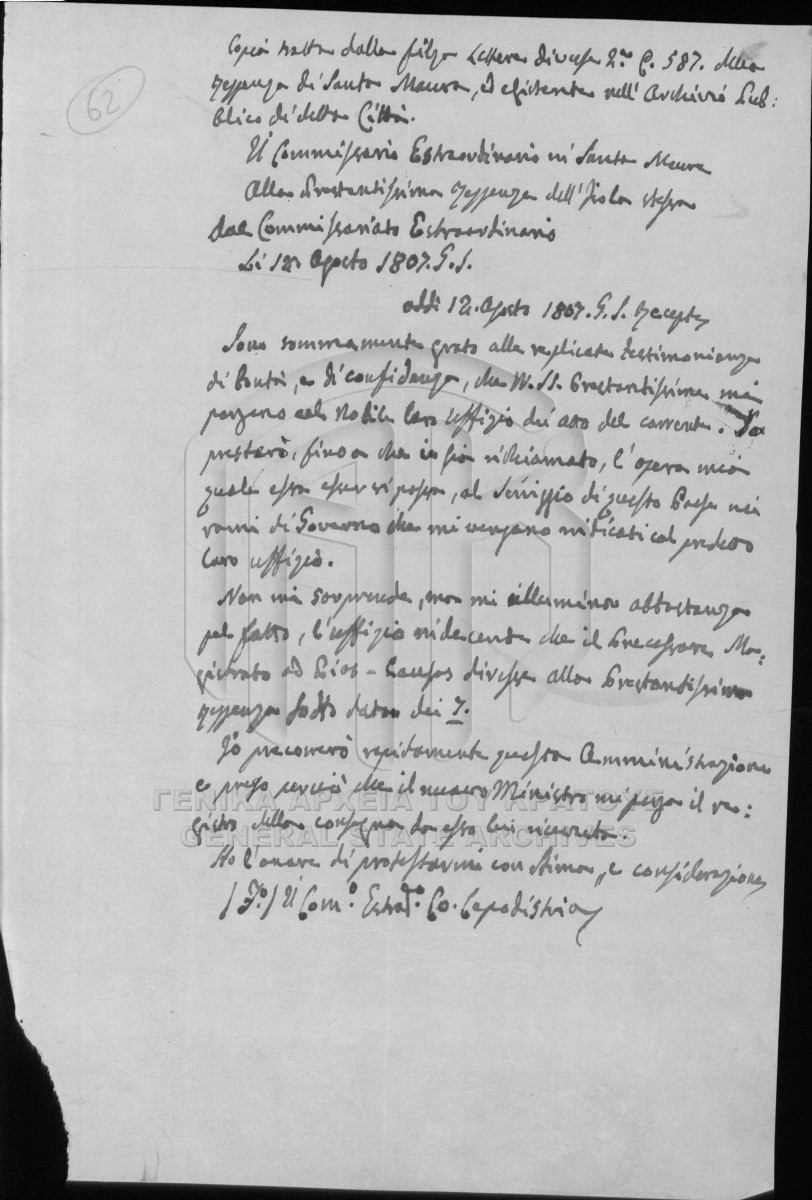 62
Copia tratta dalla filza Lettere diverse 2.da C. 587. della
Reggenza di Santa Maura, ed esistente nell' Archivio Pub:
blico di detta Città.
Il Commissario Estraordinario in Santa Maura
Alla Prestantissima Reggenza dell' Isola stessa
Dal Commissariato Estraordinario
Li 12 Agosto 1807. S.
addi 12. Agosto 1807. S. Recepta
Sono sommamente grato alle replicate testimonianze
di bontà, e di confidenza, che VV. SS. Prestantissime mi
porgono col Nobile loro uffizio dei otto del corrente. Io
presterò, fino a che io sia richiamato, l'opera mia
quale essa esser si possa, al Servizio di questo Paese nei
rami di Governo che mi vengano indicati col predetto
loro uffizio.
Non mi sorprende, ma mi illumina abbastanza
sul fatto, l'uffizio indecente che il Precessore Ma:
gistrato ad Pios-Causas diresse alla Prestantissima
Reggenza sotto data dei 7.
Io precorrerò rapidamente questa Amministrazione
e prego perciò che il nuovo Ministro mi porga il re:
gistro della consegna da esso lui ricevuta.
Ho l'onore di protestarmi con stima, e considerazione
/ F.o / Il Com.o Estrad.o Co. Capodistria
ΓΕΝΙΚΑ ΑΡΧΕΙΑ ΤΟΥ ΚΡΑΤΟΥΣ
GENERAL STATE ARCHIVES